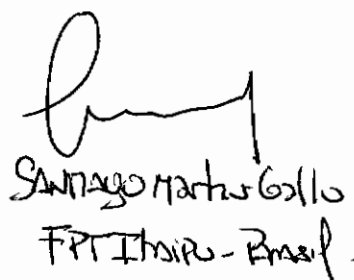 Santiago Martin Gallo
FPTI Itaipu - Brasil